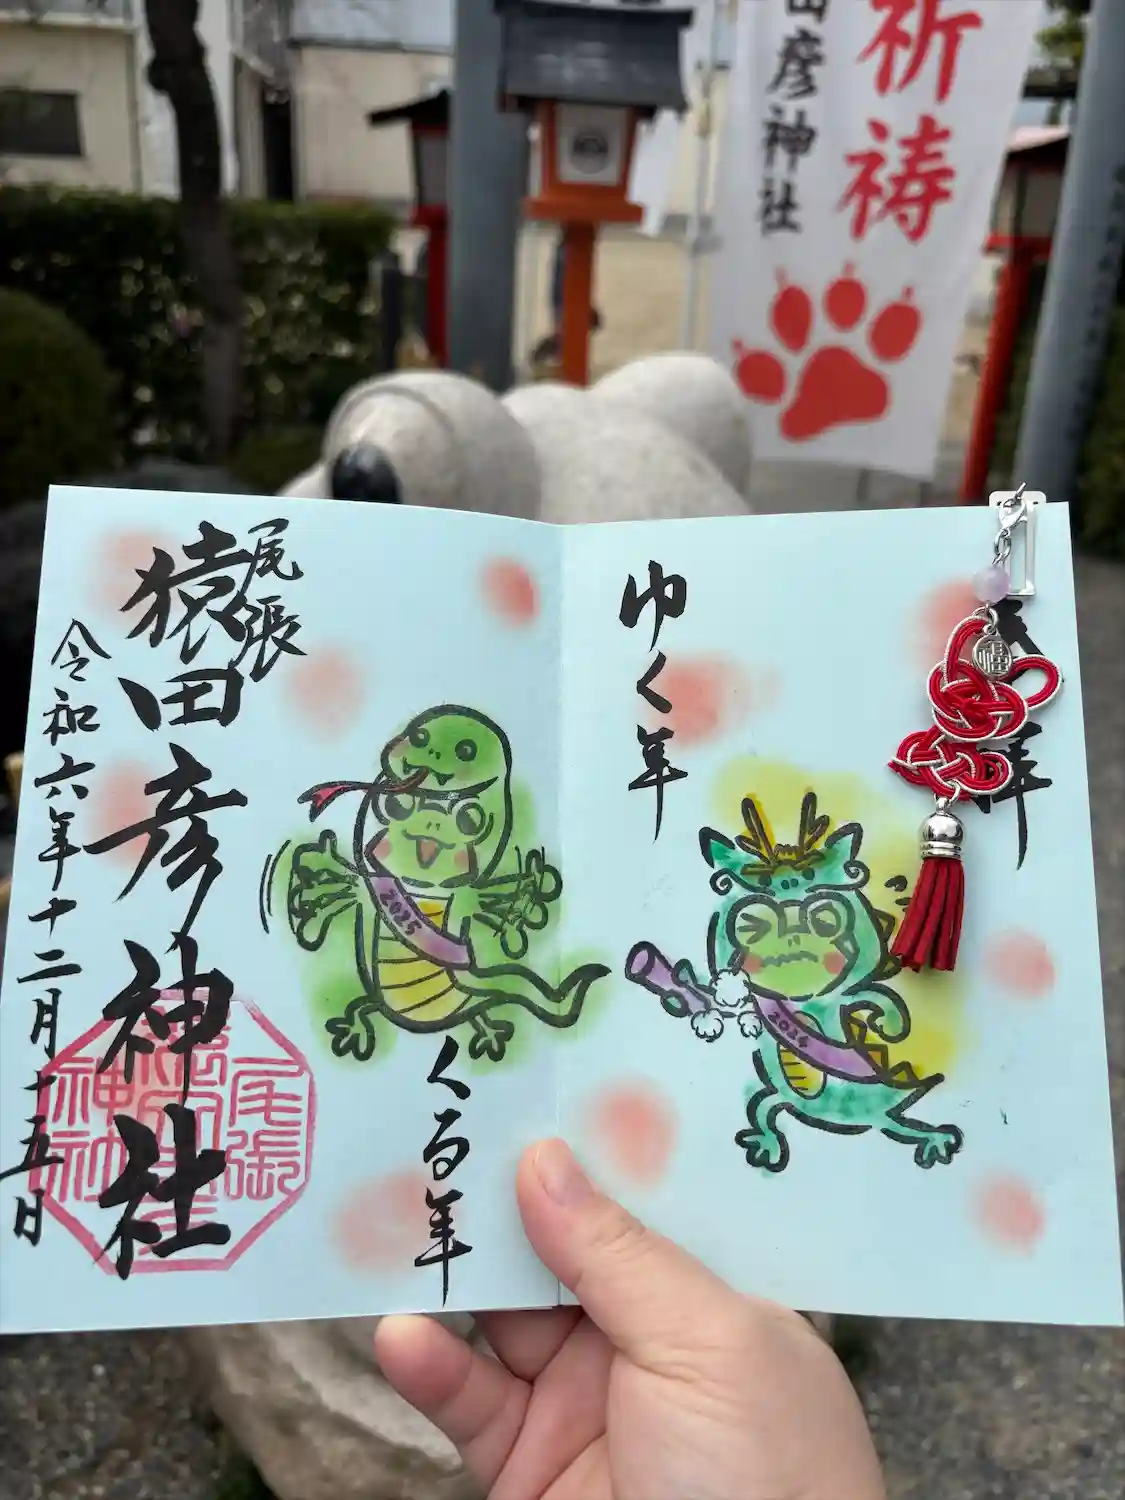 祈祷
田彦神社
福
ゆく年
2024
尾張
猿田彦神社
令和六年十二月十五日
2025
くる年
尾張
神社